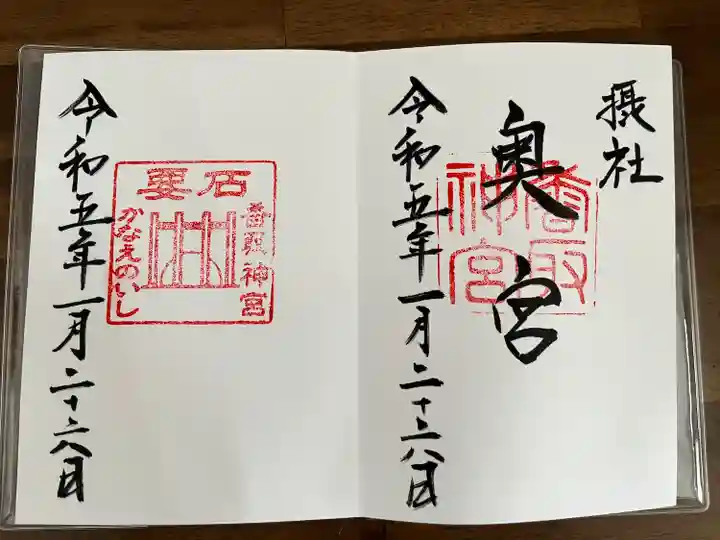 摂社
奥宮
香取
神宮
令和五年一月二十六日
要石
香取神宮
かなめのいし
令和五年一月二十六日